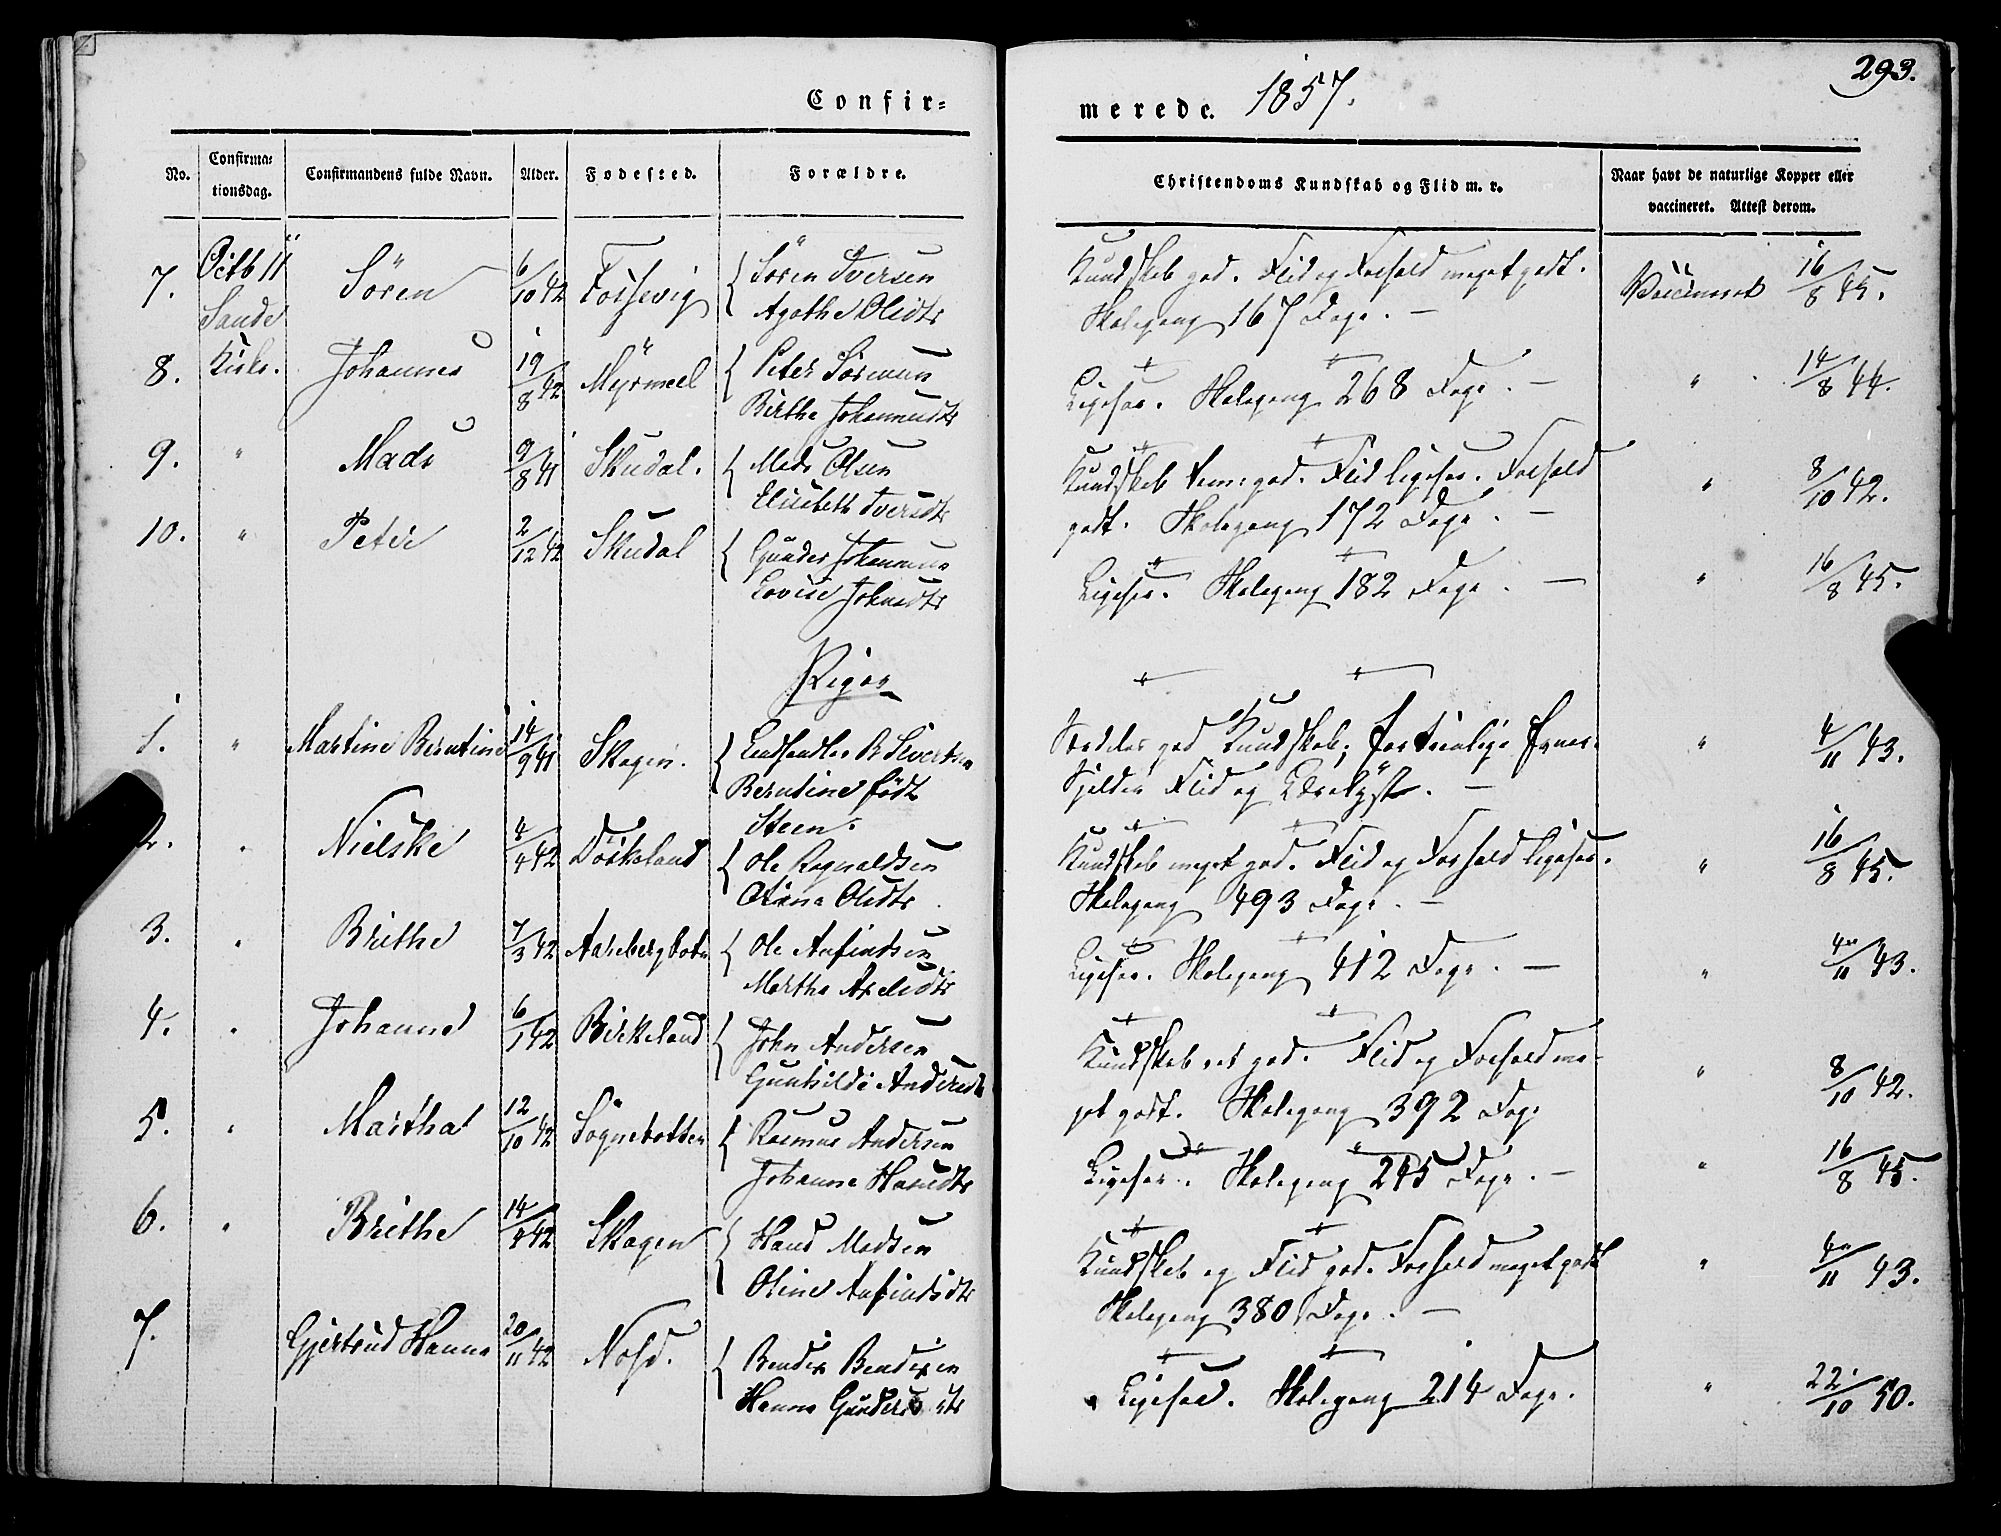 Confir-
merede. 1857.
293.
No.
Confirma-
tionsdag.
Confirmandens fulde Navn.
Alder.
Fødested.
Forældre.
Christendoms Kundskab og Flid m. v.
Naar havt de naturlige Kopper eller
vaccineret. Attest derom.
7. Octb 11 Sören 6/10 42 { Sören Iversen Kundskab god. Flid og Forhold meget godt. Vaccineret 16/8 45.
Sande Agathe Olsdtr Skolegang 167 Dage. —
8. Kirke. Johannes 19/8 42 Myrmel { Peter Sörensen Ligesaa. Skolegang 268 Dage. — " 14/8 44.
Birthe Johannesdtr
9. " Mads 9/8 41 Skudal. { Mads Olsen Kundskab temmegod. Flid ligesaa. Forhold " 8/10 42.
Elisabeth Iversdtr godt. Skolegang 172 Dage. —
10. " Peter 2/12 42 Skudal { Gunder Johannesen Ligesaa. Skolegang 182 Dage. — " 16/8 45.
Lovise Johnsdtr
Piger
1. " Martine Berntine 14/9 41 Skagen. { Landhandler R Sivertsen Særdeles god Kundskab; fortrinlige Evner. " 4/11 43.
Berntine født Sjelden Flid og Lærelyst. —
Steen.
2. " Nielske 4/4 42 { Ole Ragnaldsen Kundskab meget god. Flid og Forhold ligesaa. " 16/8 45.
Olsdtr Skolegang 493 Dage. —
3. " Brithe 7/3 42 { Ole Anfindsen Ligesaa. Skolegang 412 Dage. — " 4/11 43.
Marthe
4. " Johanne 6/1 42 Birkeland { John Andersen Kundskab ret god. Flid og Forhold me- " 8/10 42.
Gunhilde Andersdtr get godt. Skolegang 392 Dage
5. " Martha 12/10 42 Sögnebotten { Rasmus Andersen Ligesaa. Skolegang 245 Dage. — " 16/8 45.
Johanne Hansdtr
6. " Brithe 14/4 42 Skagen { Hans Madsen Kundskab og Flid god. Forhold meget godt " 4/11 43.
Oline Anfindsdtr Skolegang 380 Dage. —
7. Gjertrud Hanna 20/11 42 { Bendix Bendixen Ligesaa. Skolegang 214 Dage. " 22/10 50.
Hanna Gundersdtr